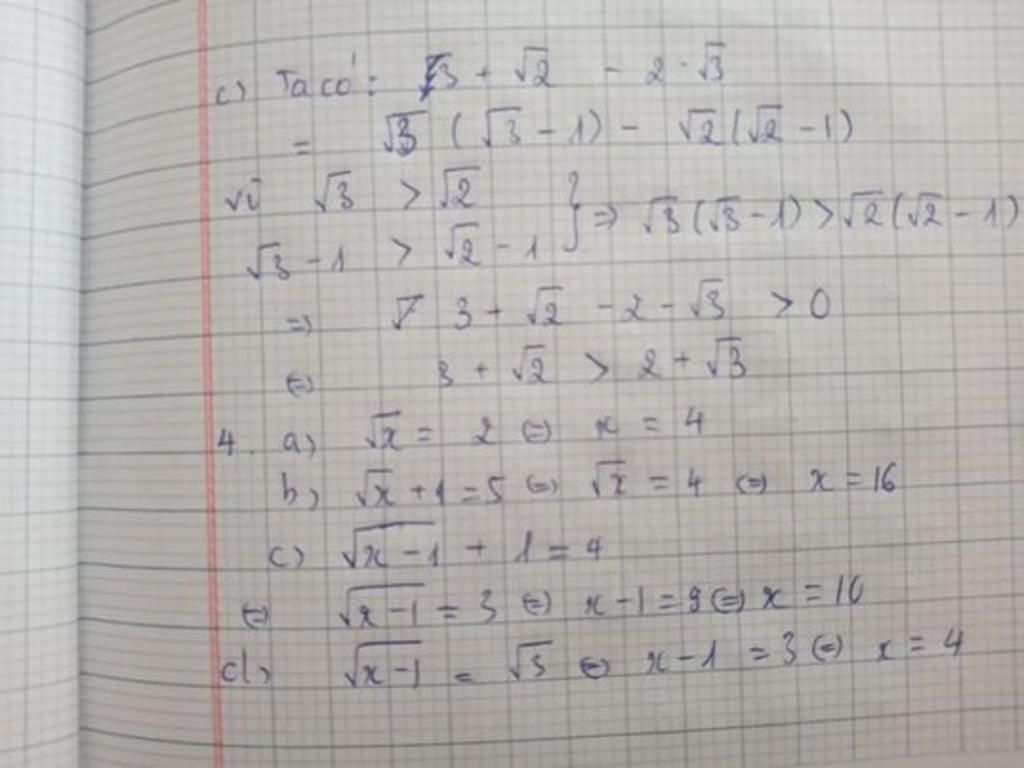 c) Ta có: 3 + √2 - 2 - √3
= √3 (√3 - 1) - √2 (√2 - 1)
vì √3 > √2
√3 - 1 > √2 - 1 } => √3 (√3 - 1) > √2 (√2 - 1)
=> 3 + √2 - 2 - √3 > 0
<=> 3 + √2 > 2 + √3
4. a) √x = 2 <=> x = 4
b) √x + 1 = 5 <=> √x = 4 <=> x = 16
c) √(x - 1) + 1 = 4
<=> √(x - 1) = 3 <=> x - 1 = 9 <=> x = 10
d) √(x - 1) = √3 <=> x - 1 = 3 <=> x = 4